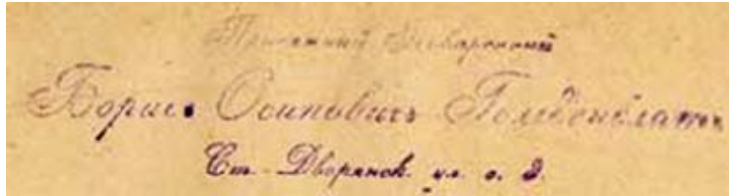 Присяжный Повѣренный
Борисъ Осиповичъ Гольденблатъ
Ст. Дворянск. ул. с. д.